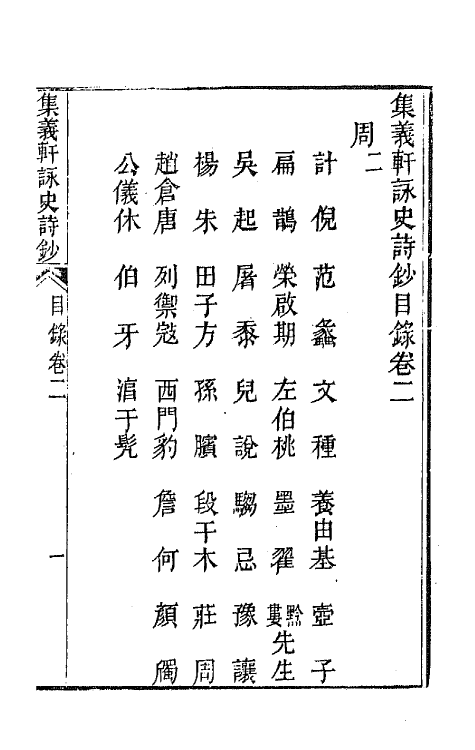 集義軒詠史詩鈔目錄卷二
周二
計倪 范蠡 文種 養由基 壺子
扁鵲 榮啟期 左伯桃 墨翟 黔婁先生
吳起 屠黍 兒說 騶忌 豫讓
楊朱 田子方 孫臏 段干木 莊周
趙倉唐 列禦寇 西門豹 詹何 顏斶
公儀休 伯牙 淳于髠
集義軒詠史詩鈔 目錄卷二 一